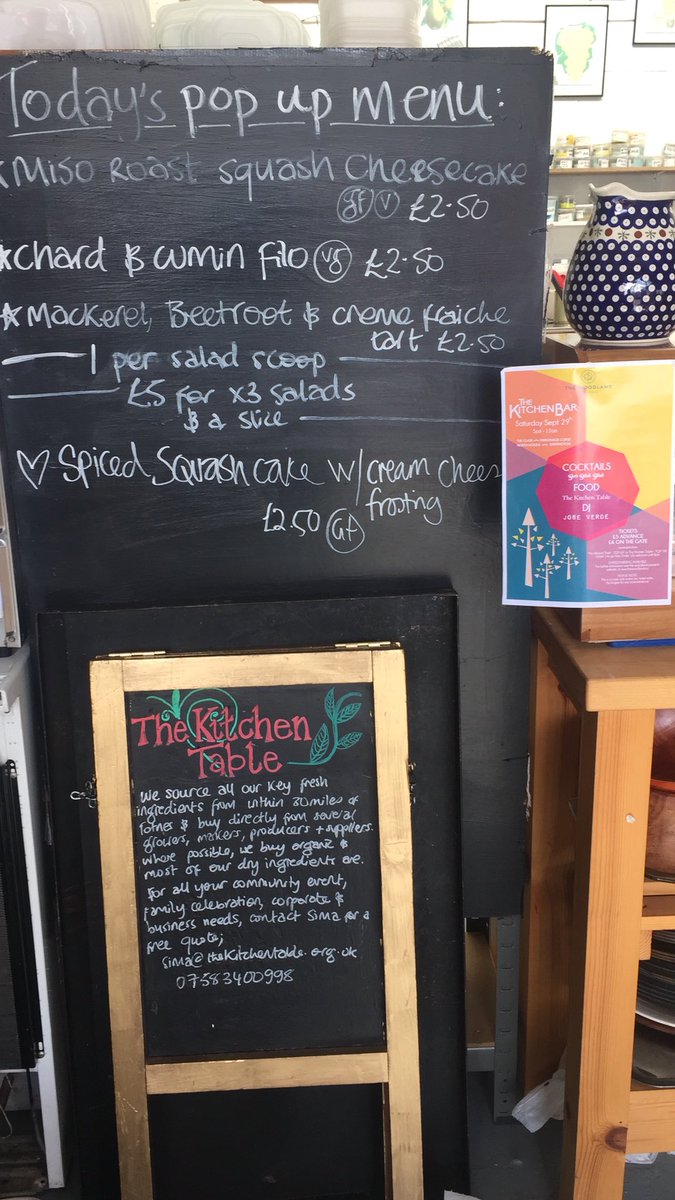 Today's pop up menu:
Miso Roast squash Cheesecake
gf v £2.50
Chard & cumin filo vg £2.50
Mackerel, Beetroot & creme fraiche
tart £2.50
1 per salad scoop
£5 for x3 salads
& a slice
Spiced Squash cake w/ cream chees
frosting
£2.50 Gf
The Kitchen
Table
We source all our key fresh
ingredients from within 30 miles of
Totnes & buy directly from several
growers, makers, producers + suppliers.
Where possible, we buy organic &
most of our dry ingredients are.
For all your community event,
family celebration, corporate &
business needs, contact Sima for a
free quote;
sima@thekitchentable.org.uk
07583400998
THE WOODLAND
THE
KITCHEN BAR
Saturday Sept 29th
COCKTAILS
FOOD
The Kitchen Table
DJ
JOBE VERDE
TICKETS
£5 ADVANCE
£6 ON THE GATE